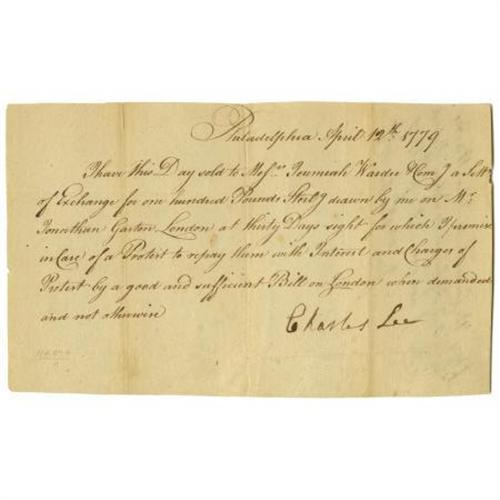 Philadelphia April 12th. 1779
I have this Day sold to Messrs. Jeremiah Warder & Comy a Sett
of Exchange for one hundred Pounds Sterlg drawn by me on Mr.
Jonathan Garton London at thirty Days sight for which I promise
in Case of a Protest to repay them with Interest and Charges of
Protest by a good and sufficient Bill on London when demanded
and not otherwise
Charles Lee